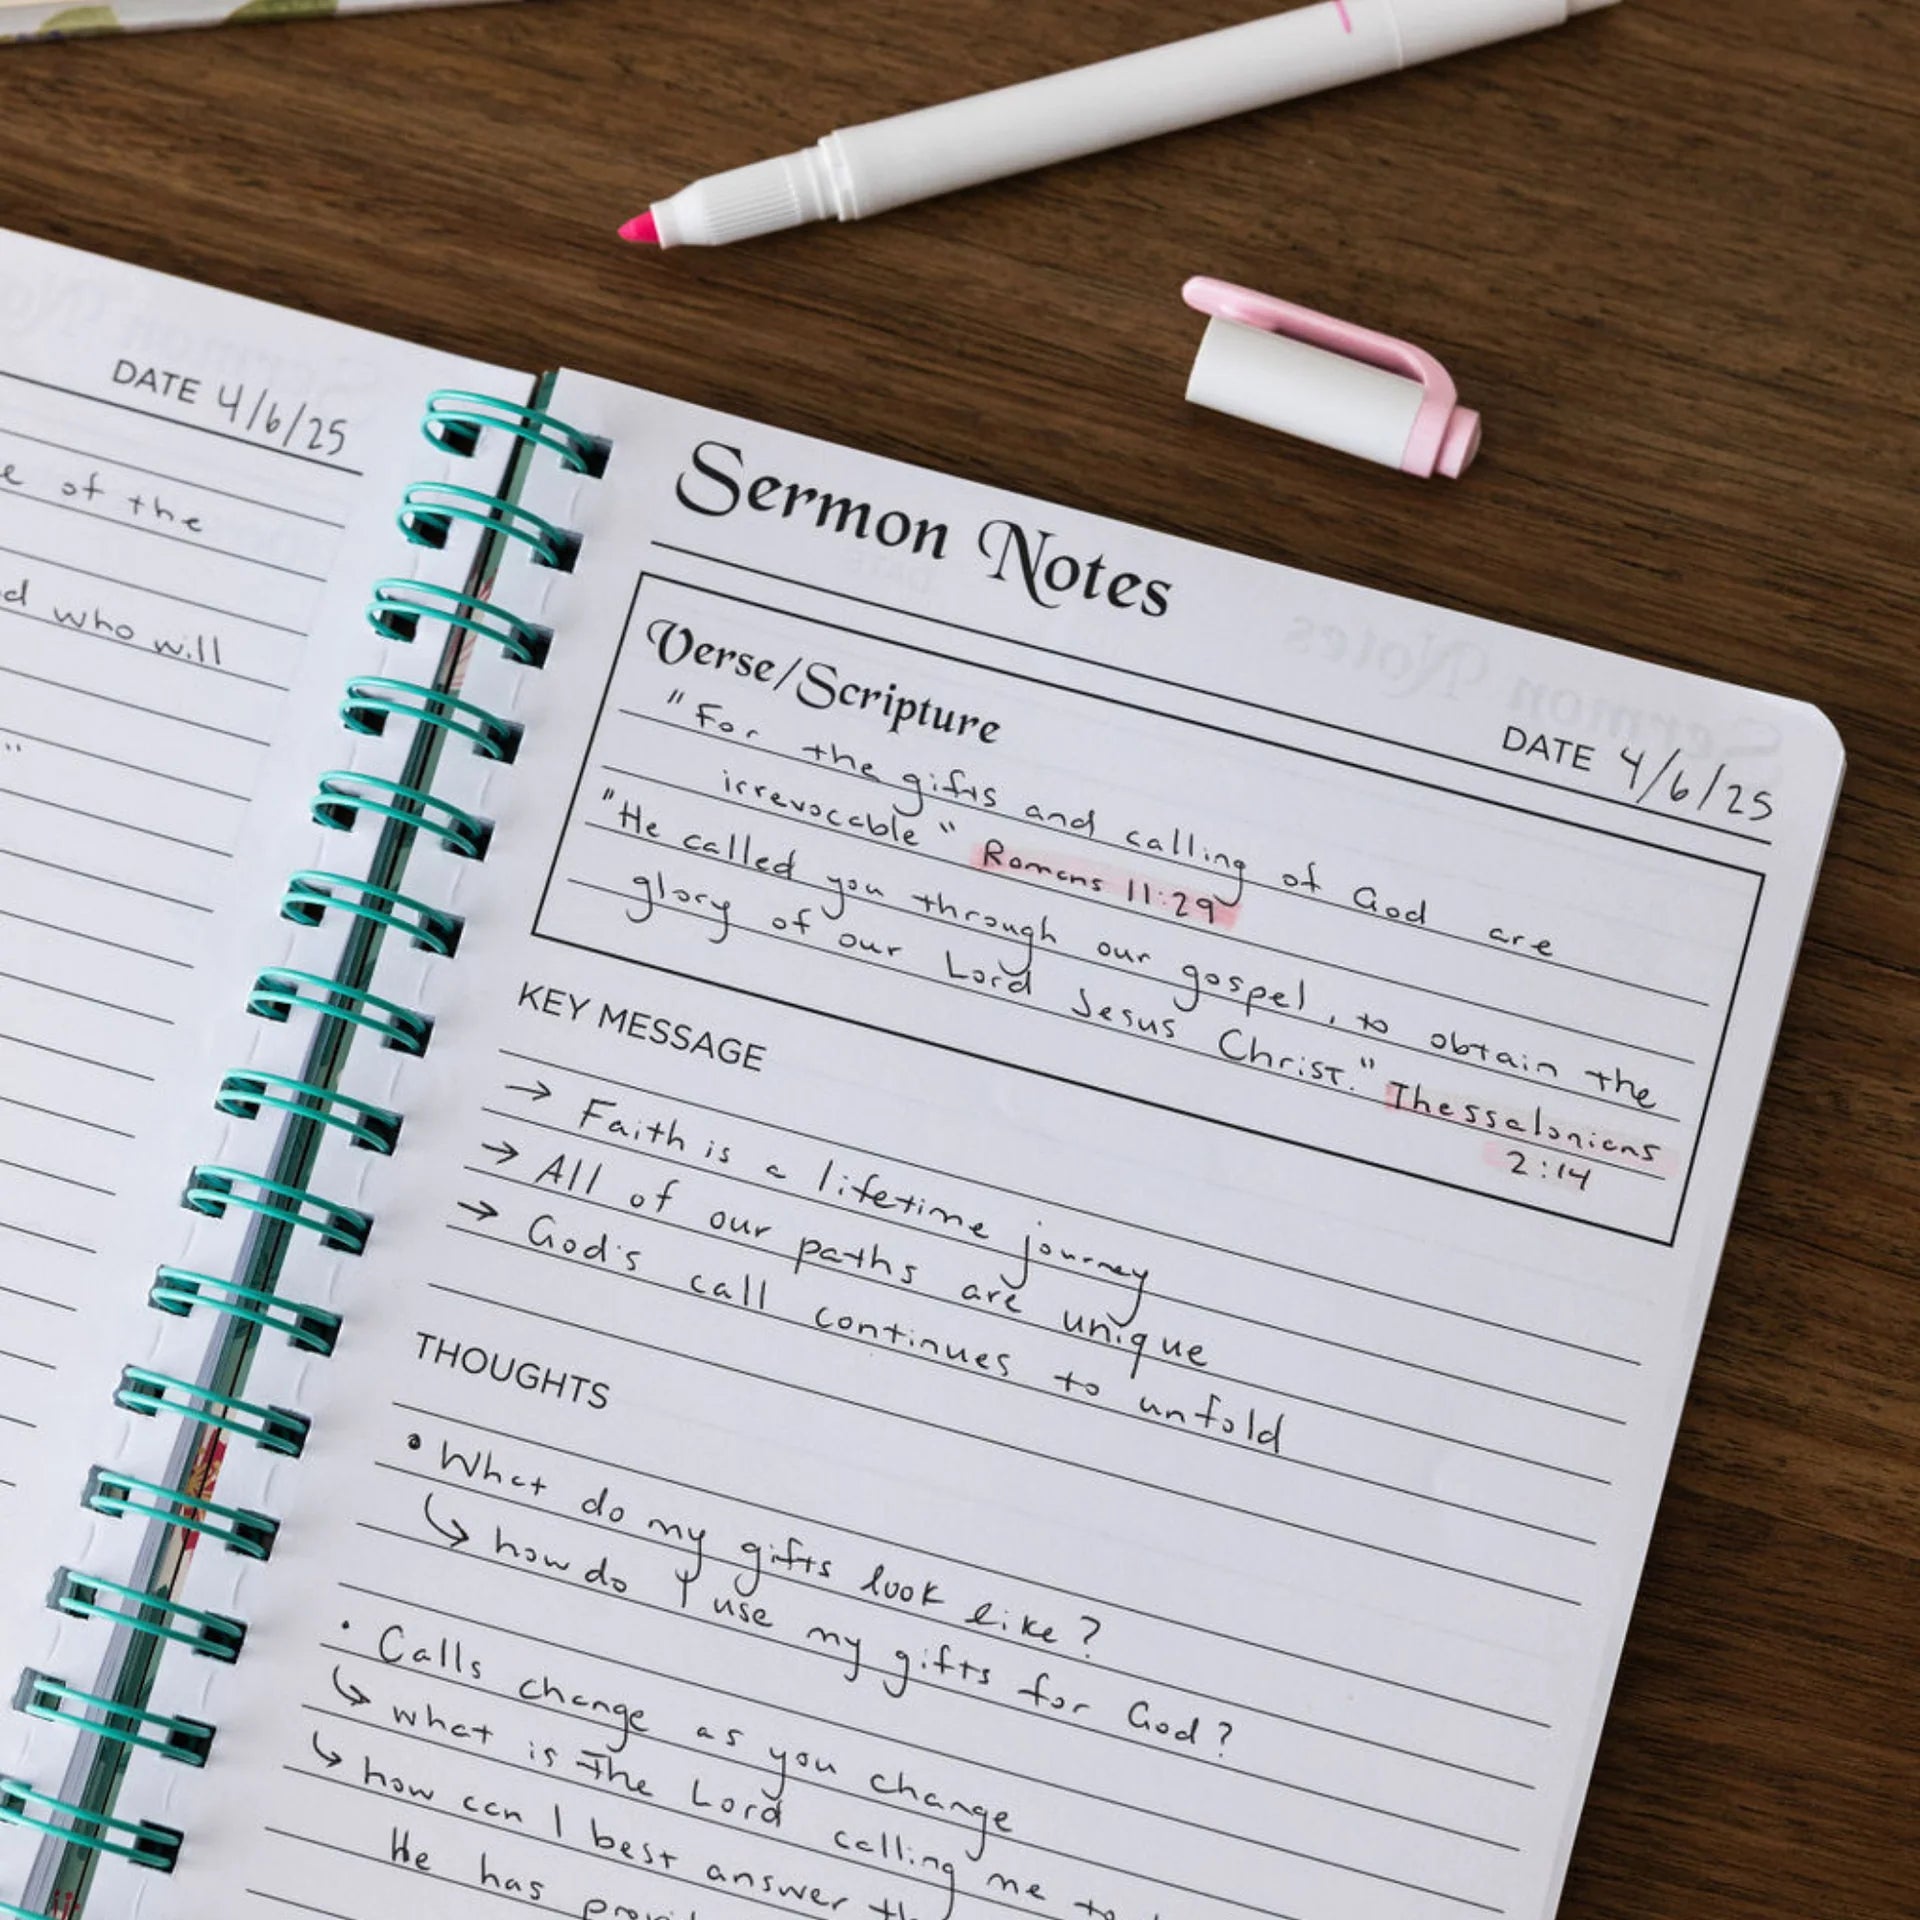 DATE 4/6/25
of the
who will
"
Sermon Notes
DATE 4/6/25
Verse/Scripture
"For the gifts and calling of God are
irrevocable" Romans 11:29
"He called you through our gospel, to obtain the
glory of our Lord Jesus Christ." Thessalonians
2:14
KEY MESSAGE
→ Faith is a lifetime journey
→ All of our paths are unique
→ God's call continues to unfold
THOUGHTS
• What do my gifts look like?
↳ how do I use my gifts for God?
• Calls change as you change
↳ what is The Lord calling me to
↳ how can I best answer
He has